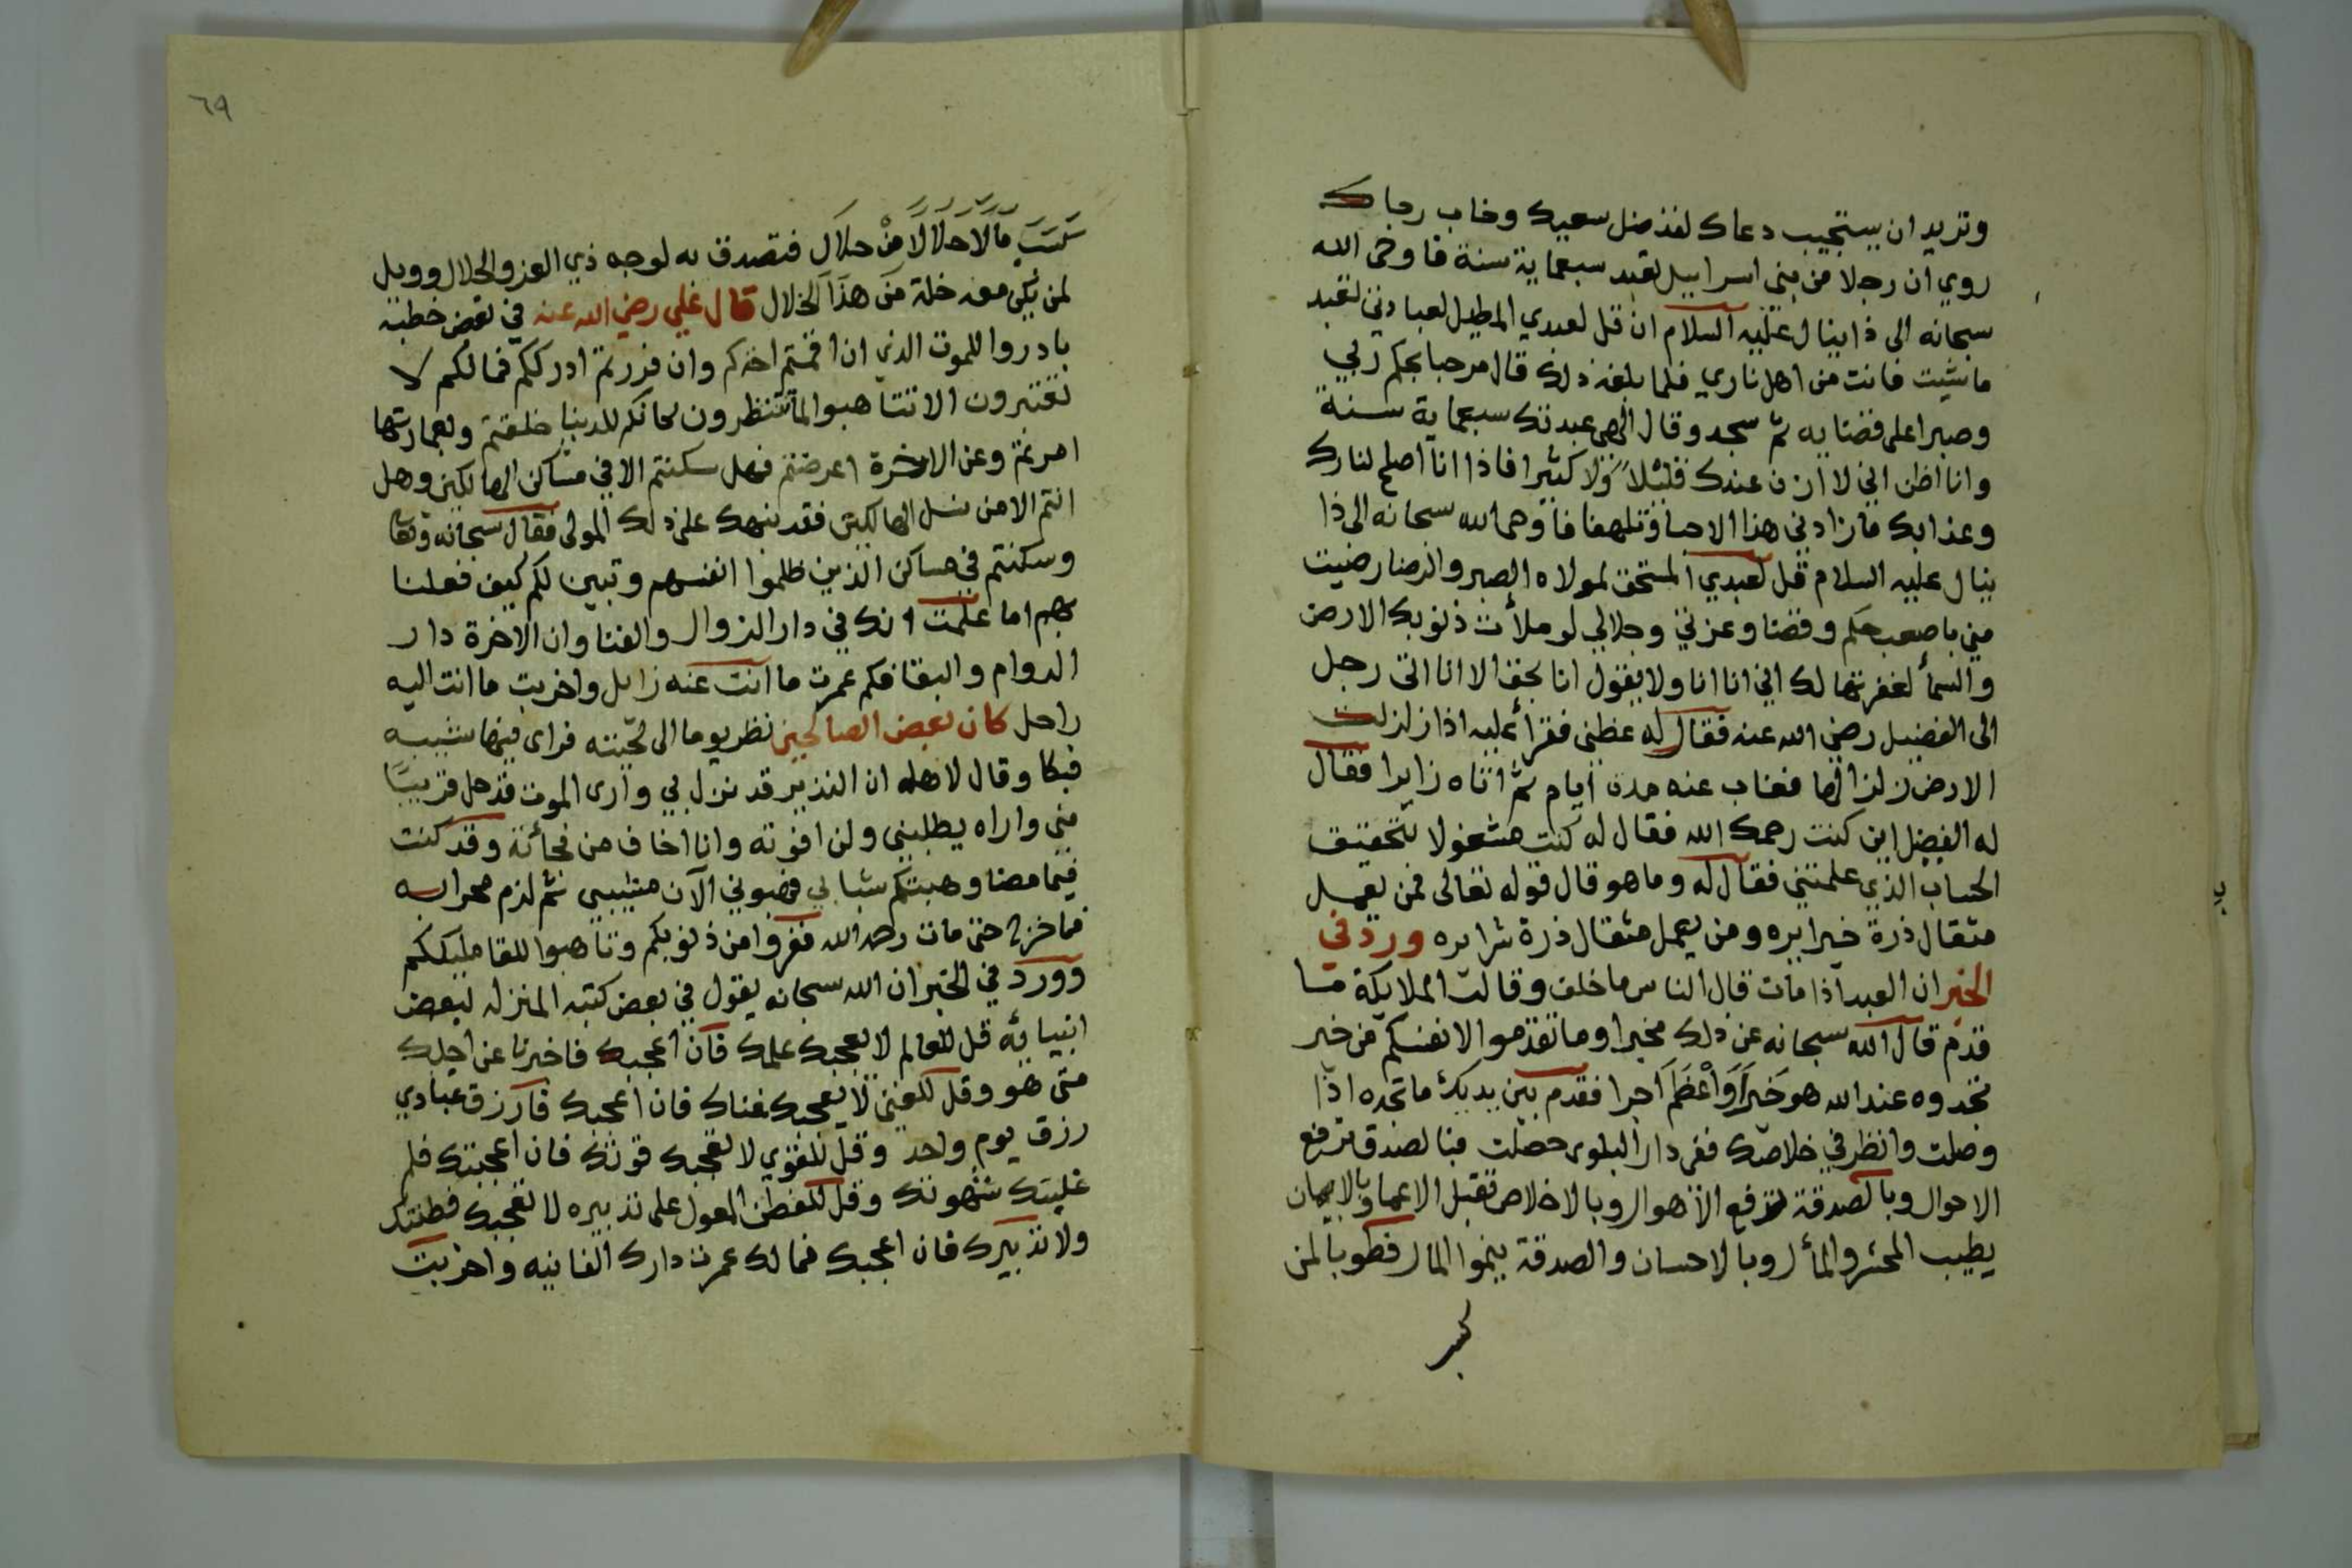 وتريد ان يستجيب دعاك لقد ضل سعيك وخاب رجاك
روي ان رجلا من بني اسراييل تعبد سبعماية سنة فاوحى الله
سبحانه الى ذانيال عليه السلام ان قل لعبدي المطيل لعبادتي تعبد
ما شيت فانت من اهل ناري فلما بلغه ذلك قال مرحبا بحكم ربي
وصبرا على قضايه ثم سجد وقال الهي عبدتك سبعماية سنة
وانا اظن اني لا ازن عندك قليلا ولا كثيرا فاذا انا اصلح لنارك
وعذابك ما زادني هذا الا حبا وتلهفا فاوحى الله سبحانه الى ذا
نيال عليه السلام قل لعبدي المستحق لمولاه الصبر والرضا رضيت
مني باصعب حكم وقضا وعزتي وجلالي لو ملأت ذنوبك الارض
والسمأ لغفرتها لك اني انا انا ولا يقول انا بحق الا انا اتى رجل
الى الفضيل رضي الله عنه فقال له عظني فقرأ عليه اذا زلزلت
الارض زلزالها فغاب عنه مدة ايام ثم اتاه زايرا فقال
له الفضيل اين كنت رحمك الله فقال له كنت مشغولا بتحقيق
الحساب الذي علمتني فقال له وما هو قال قوله تعالى فمن يعمل
مثقال ذرة خيرا يره ومن يعمل مثقال ذرة شرا يره ورد في
الخبر ان العبد اذا مات قال الناس ما خلف وقالت الملايكة ما
قدم قال الله سبحانه عن ذلك مخبرا وما تقدموا لانفسكم من خير
تجدوه عند الله هو خيرا واعظم اجرا فقدم بين يديك ما تجده اذا
وصلت وانظر في خلاصك ففي دار البلوى حصلت فبالصدق ترفع
الاحوال وبالصدقة تدفع الاهوال وبالاخلاص تقبل الاعمال وبالايمان
يطيب المحشر والمأل وبالاحسان والصدقة ينموا المال فطوبا لمن
كسب
كسب مالا حلالا من حلال فتصدق به لوجه ذي العز والجلال وويل
لمن يكن معه خلة من هذا الخلال قال علي رضي الله عنه في بعض خطبه
بادروا للموت الذي ان اقمتم اخذكم وان فررتم ادرككم فما لكم لا
تعتبرون الا تتاهبوا لما تنتظرون كانكم للدنيا خلقتم وبعمارتها
امرتم وعن الاخرة اعرضتم فهل سكنتم الا في مساكن الهالكين وهل
انتم الا من نسل الهالكين فقد نبهك على ذلك المولى فقال سبحانه وتعا
وسكنتم في مساكن الذين ظلموا انفسهم وتبين لكم كيف فعلنا
بهم اما علمت انك في دار الزوال والفنا وان الاخرة دار
الدوام والبقا فكم عمرت ما انت عنه زايل واخربت ما انت اليه
راحل كان بعض الصالحين نظر يوما الى لحيته فراى فيها شيبه
فبكا وقال لاهله ان النذير قد نزل بي وارى الموت قد حل قريبا
مني واراه يطلبني ولن افوته وانا اخاف من فجأته وقد كنت
فيما مضا وهبتكم شبابي فهبوني الآن مشيبي ثم لزم محرابه
فما خرج حتى مات رحمه الله ففروا من ذنوبكم وتاهبوا للقا مليككم
وورد في الخبر ان الله سبحانه يقول في بعض كتبه المنزله لبعض
انبيايه قل للعالم لا يعجبك علمك فان اعجبك فاخبرنا عن اجلك
متى هو وقل للغني لا يعجبك غناك فان اعجبك فارزق عبادي
رزق يوم واحد وقل للقوي لا تعجبك قوتك فان اعجبتك فلم
غلبتك شهوتك وقل للفطن المعول على تدبيره لا تعجبك فطنتك
ولا تدبيرك فان اعجبك فما لك عمرت دارك الفانيه واخربت
٦٩